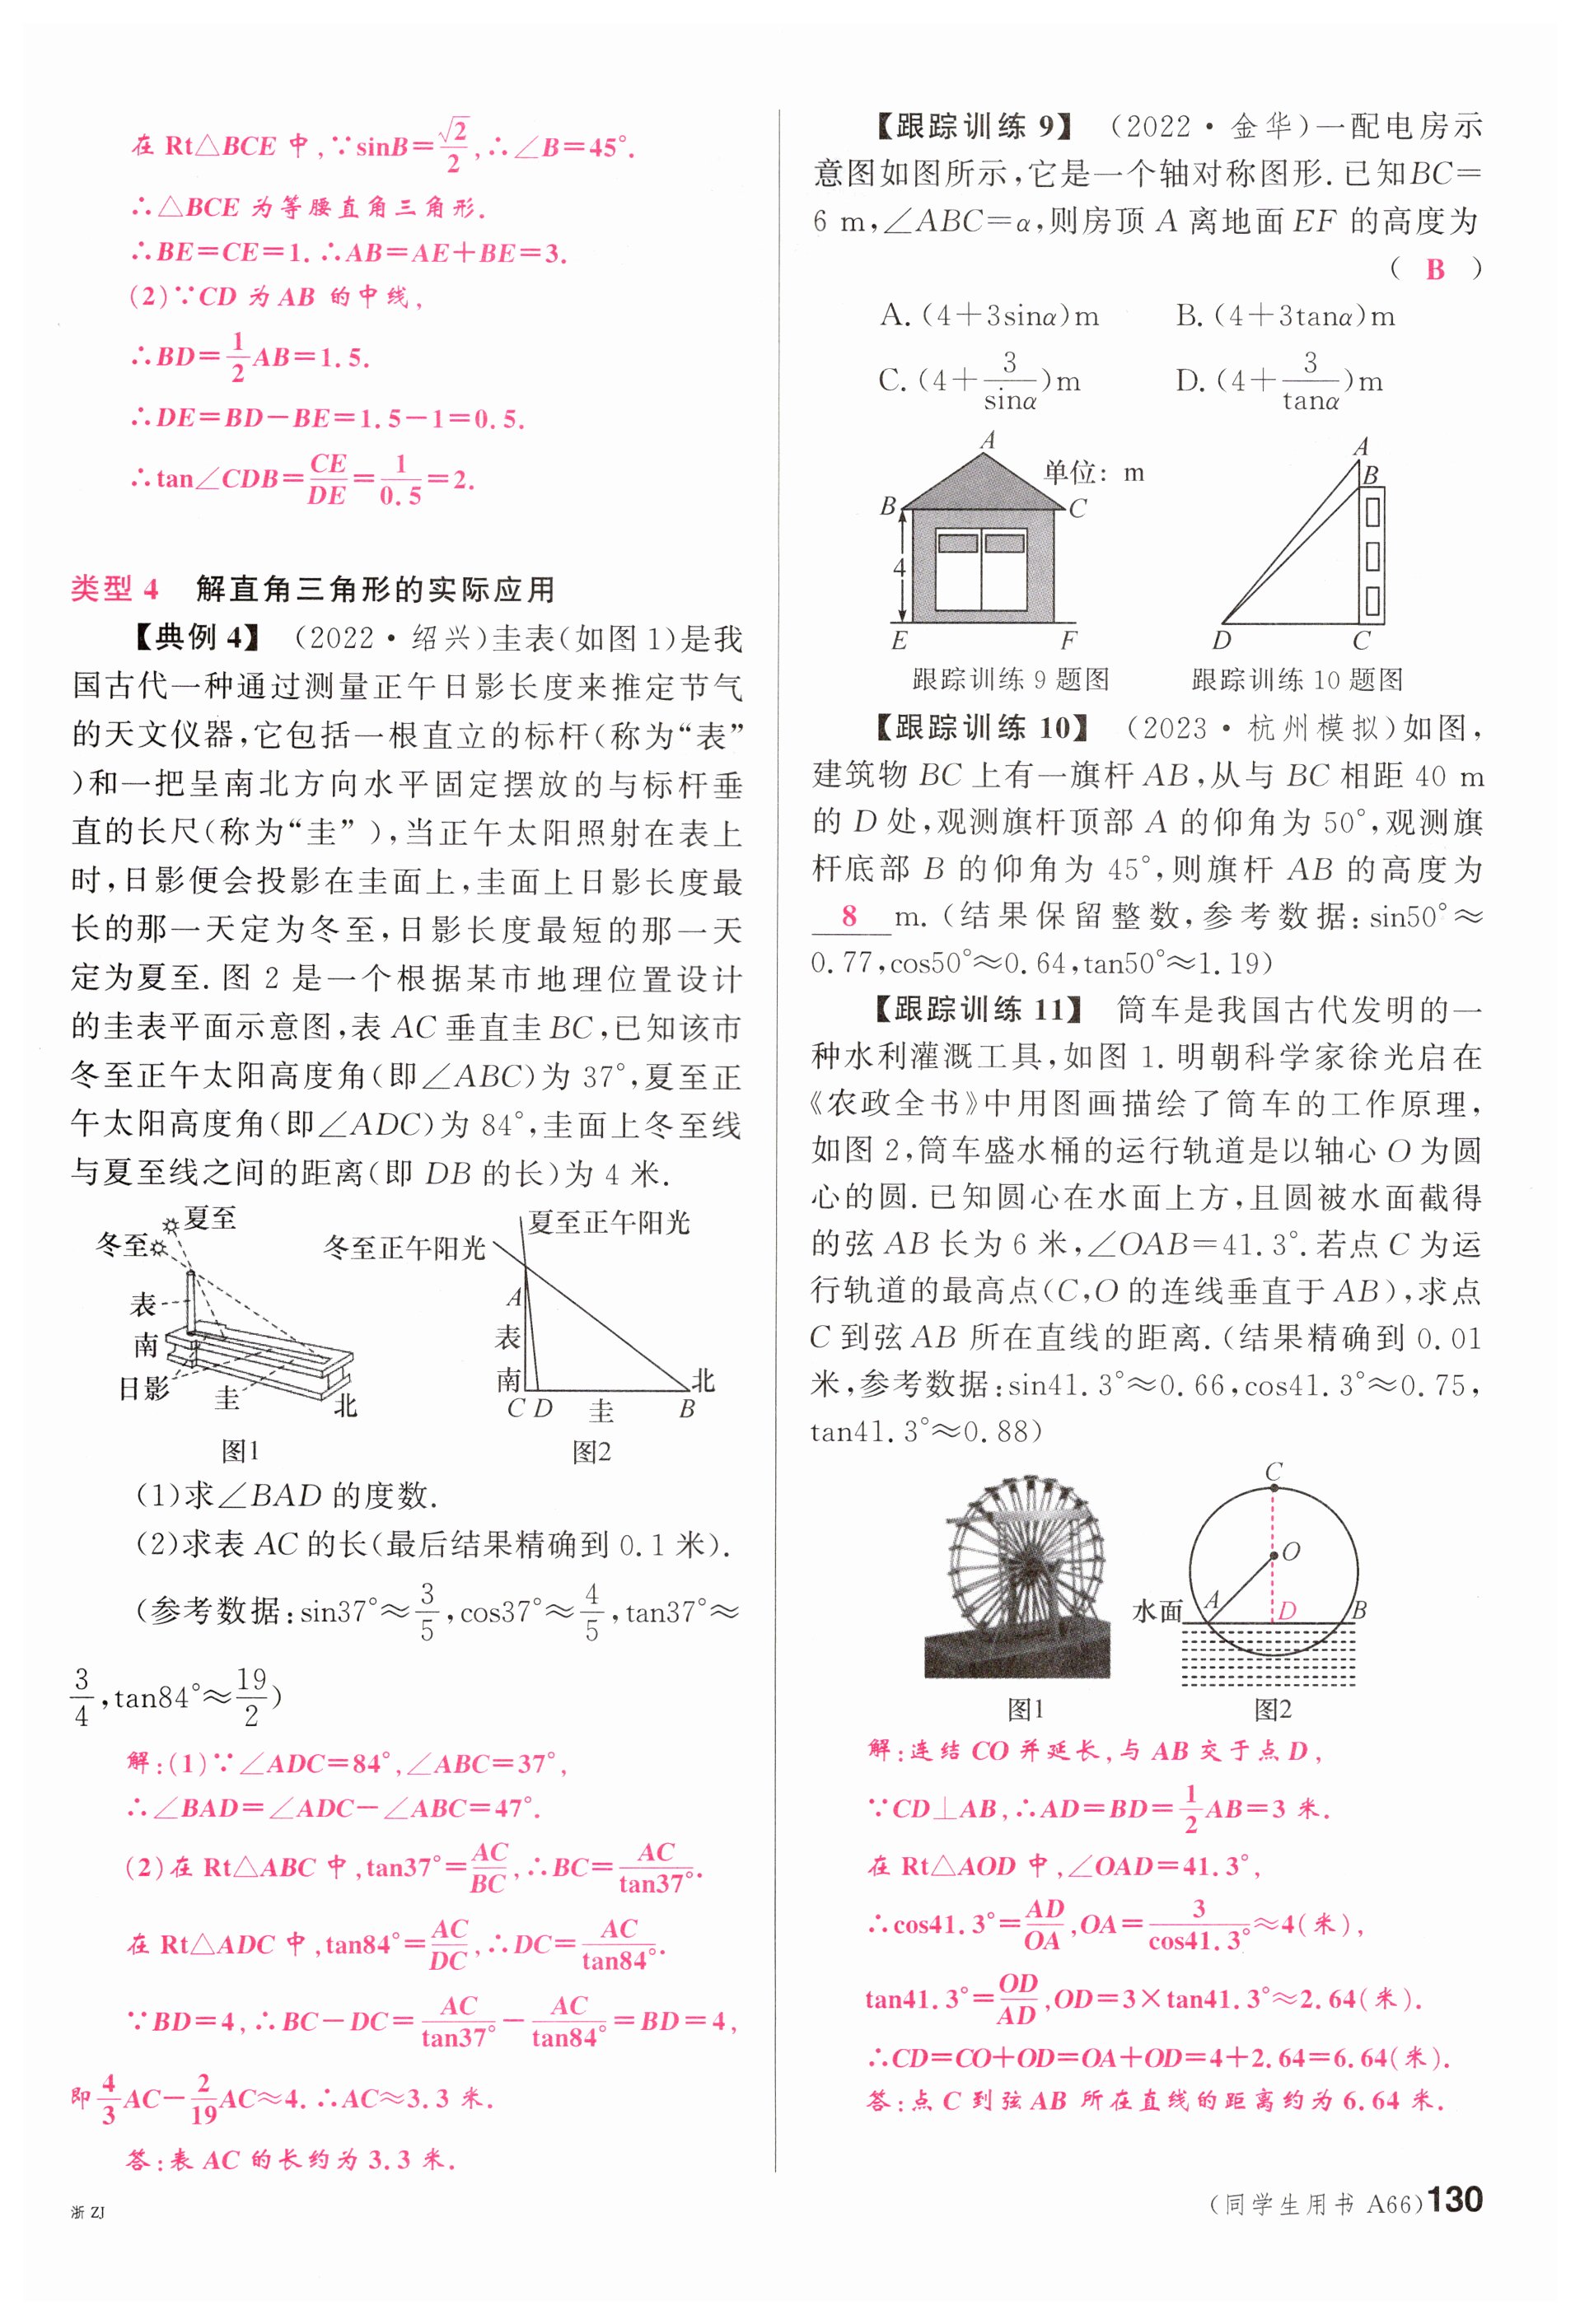 在 Rt△BCE 中,∵sinB=√2/2,∴∠B=45°.
∴△BCE 为等腰直角三角形.
∴BE=CE=1.∴AB=AE+BE=3.
(2)∵CD 为 AB 的中线,
∴BD=1/2AB=1.5.
∴DE=BD−BE=1.5−1=0.5.
∴tan∠CDB=CE/DE=1/0.5=2.
类型 4 解直角三角形的实际应用
【典例 4】 (2022·绍兴)圭表(如图 1)是我
国古代一种通过测量正午日影长度来推定节气
的天文仪器,它包括一根直立的标杆(称为“表”
)和一把呈南北方向水平固定摆放的与标杆垂
直的长尺(称为“圭”),当正午太阳照射在表上
时,日影便会投影在圭面上,圭面上日影长度最
长的那一天定为冬至,日影长度最短的那一天
定为夏至.图 2 是一个根据某市地理位置设计
的圭表平面示意图,表 AC 垂直圭 BC,已知该市
冬至正午太阳高度角(即∠ABC)为 37°,夏至正
午太阳高度角(即∠ADC)为 84°,圭面上冬至线
与夏至线之间的距离(即 DB 的长)为 4 米.
夏至
冬至
表
南
日影
圭
北
图1
夏至正午阳光
冬至正午阳光
A
表
南
北
C D 圭 B
图2
(1)求∠BAD 的度数.
(2)求表 AC 的长(最后结果精确到 0.1 米).
(参考数据:sin37°≈3/5,cos37°≈4/5,tan37°≈
3/4,tan84°≈19/2)
解:(1)∵∠ADC=84°,∠ABC=37°,
∴∠BAD=∠ADC−∠ABC=47°.
(2)在 Rt△ABC 中,tan37°=AC/BC,∴BC=AC/tan37°.
在 Rt△ADC 中,tan84°=AC/DC,∴DC=AC/tan84°.
∵BD=4,∴BC−DC=AC/tan37°−AC/tan84°=BD=4,
即4/3AC−2/19AC≈4.∴AC≈3.3 米.
答:表 AC 的长约为 3.3 米.
浙 ZJ
【跟踪训练 9】 (2022·金华)一配电房示
意图如图所示,它是一个轴对称图形.已知BC=
6 m,∠ABC=α,则房顶 A 离地面 EF 的高度为
( B )
A.(4+3sinα)m B.(4+3tanα)m
C.(4+3/sinα)m D.(4+3/tanα)m
A
单位: m
B
C
4
E F
跟踪训练 9 题图
A
B
D C
跟踪训练 10 题图
【跟踪训练 10】 (2023·杭州模拟)如图,
建筑物 BC 上有一旗杆 AB,从与 BC 相距 40 m
的 D 处,观测旗杆顶部 A 的仰角为 50°,观测旗
杆底部 B 的仰角为 45°,则旗杆 AB 的高度为
8 m.(结果保留整数,参考数据:sin50°≈
0.77,cos50°≈0.64,tan50°≈1.19)
【跟踪训练 11】 筒车是我国古代发明的一
种水利灌溉工具,如图 1.明朝科学家徐光启在
《农政全书》中用图画描绘了筒车的工作原理,
如图 2,筒车盛水桶的运行轨道是以轴心 O 为圆
心的圆.已知圆心在水面上方,且圆被水面截得
的弦 AB 长为 6 米,∠OAB=41.3°.若点 C 为运
行轨道的最高点(C,O 的连线垂直于 AB),求点
C 到弦 AB 所在直线的距离.(结果精确到 0.01
米,参考数据:sin41.3°≈0.66,cos41.3°≈0.75,
tan41.3°≈0.88)
图1
C
O
水面 A D B
图2
解:连结 CO 并延长,与 AB 交于点 D,
∵CD⊥AB,∴AD=BD=1/2AB=3 米.
在 Rt△AOD 中,∠OAD=41.3°,
∴cos41.3°=AD/OA,OA=3/cos41.3°≈4(米),
tan41.3°=OD/AD,OD=3×tan41.3°≈2.64(米).
∴CD=CO+OD=OA+OD=4+2.64=6.64(米).
答:点 C 到弦 AB 所在直线的距离约为 6.64 米.
(同学生用书 A66)130